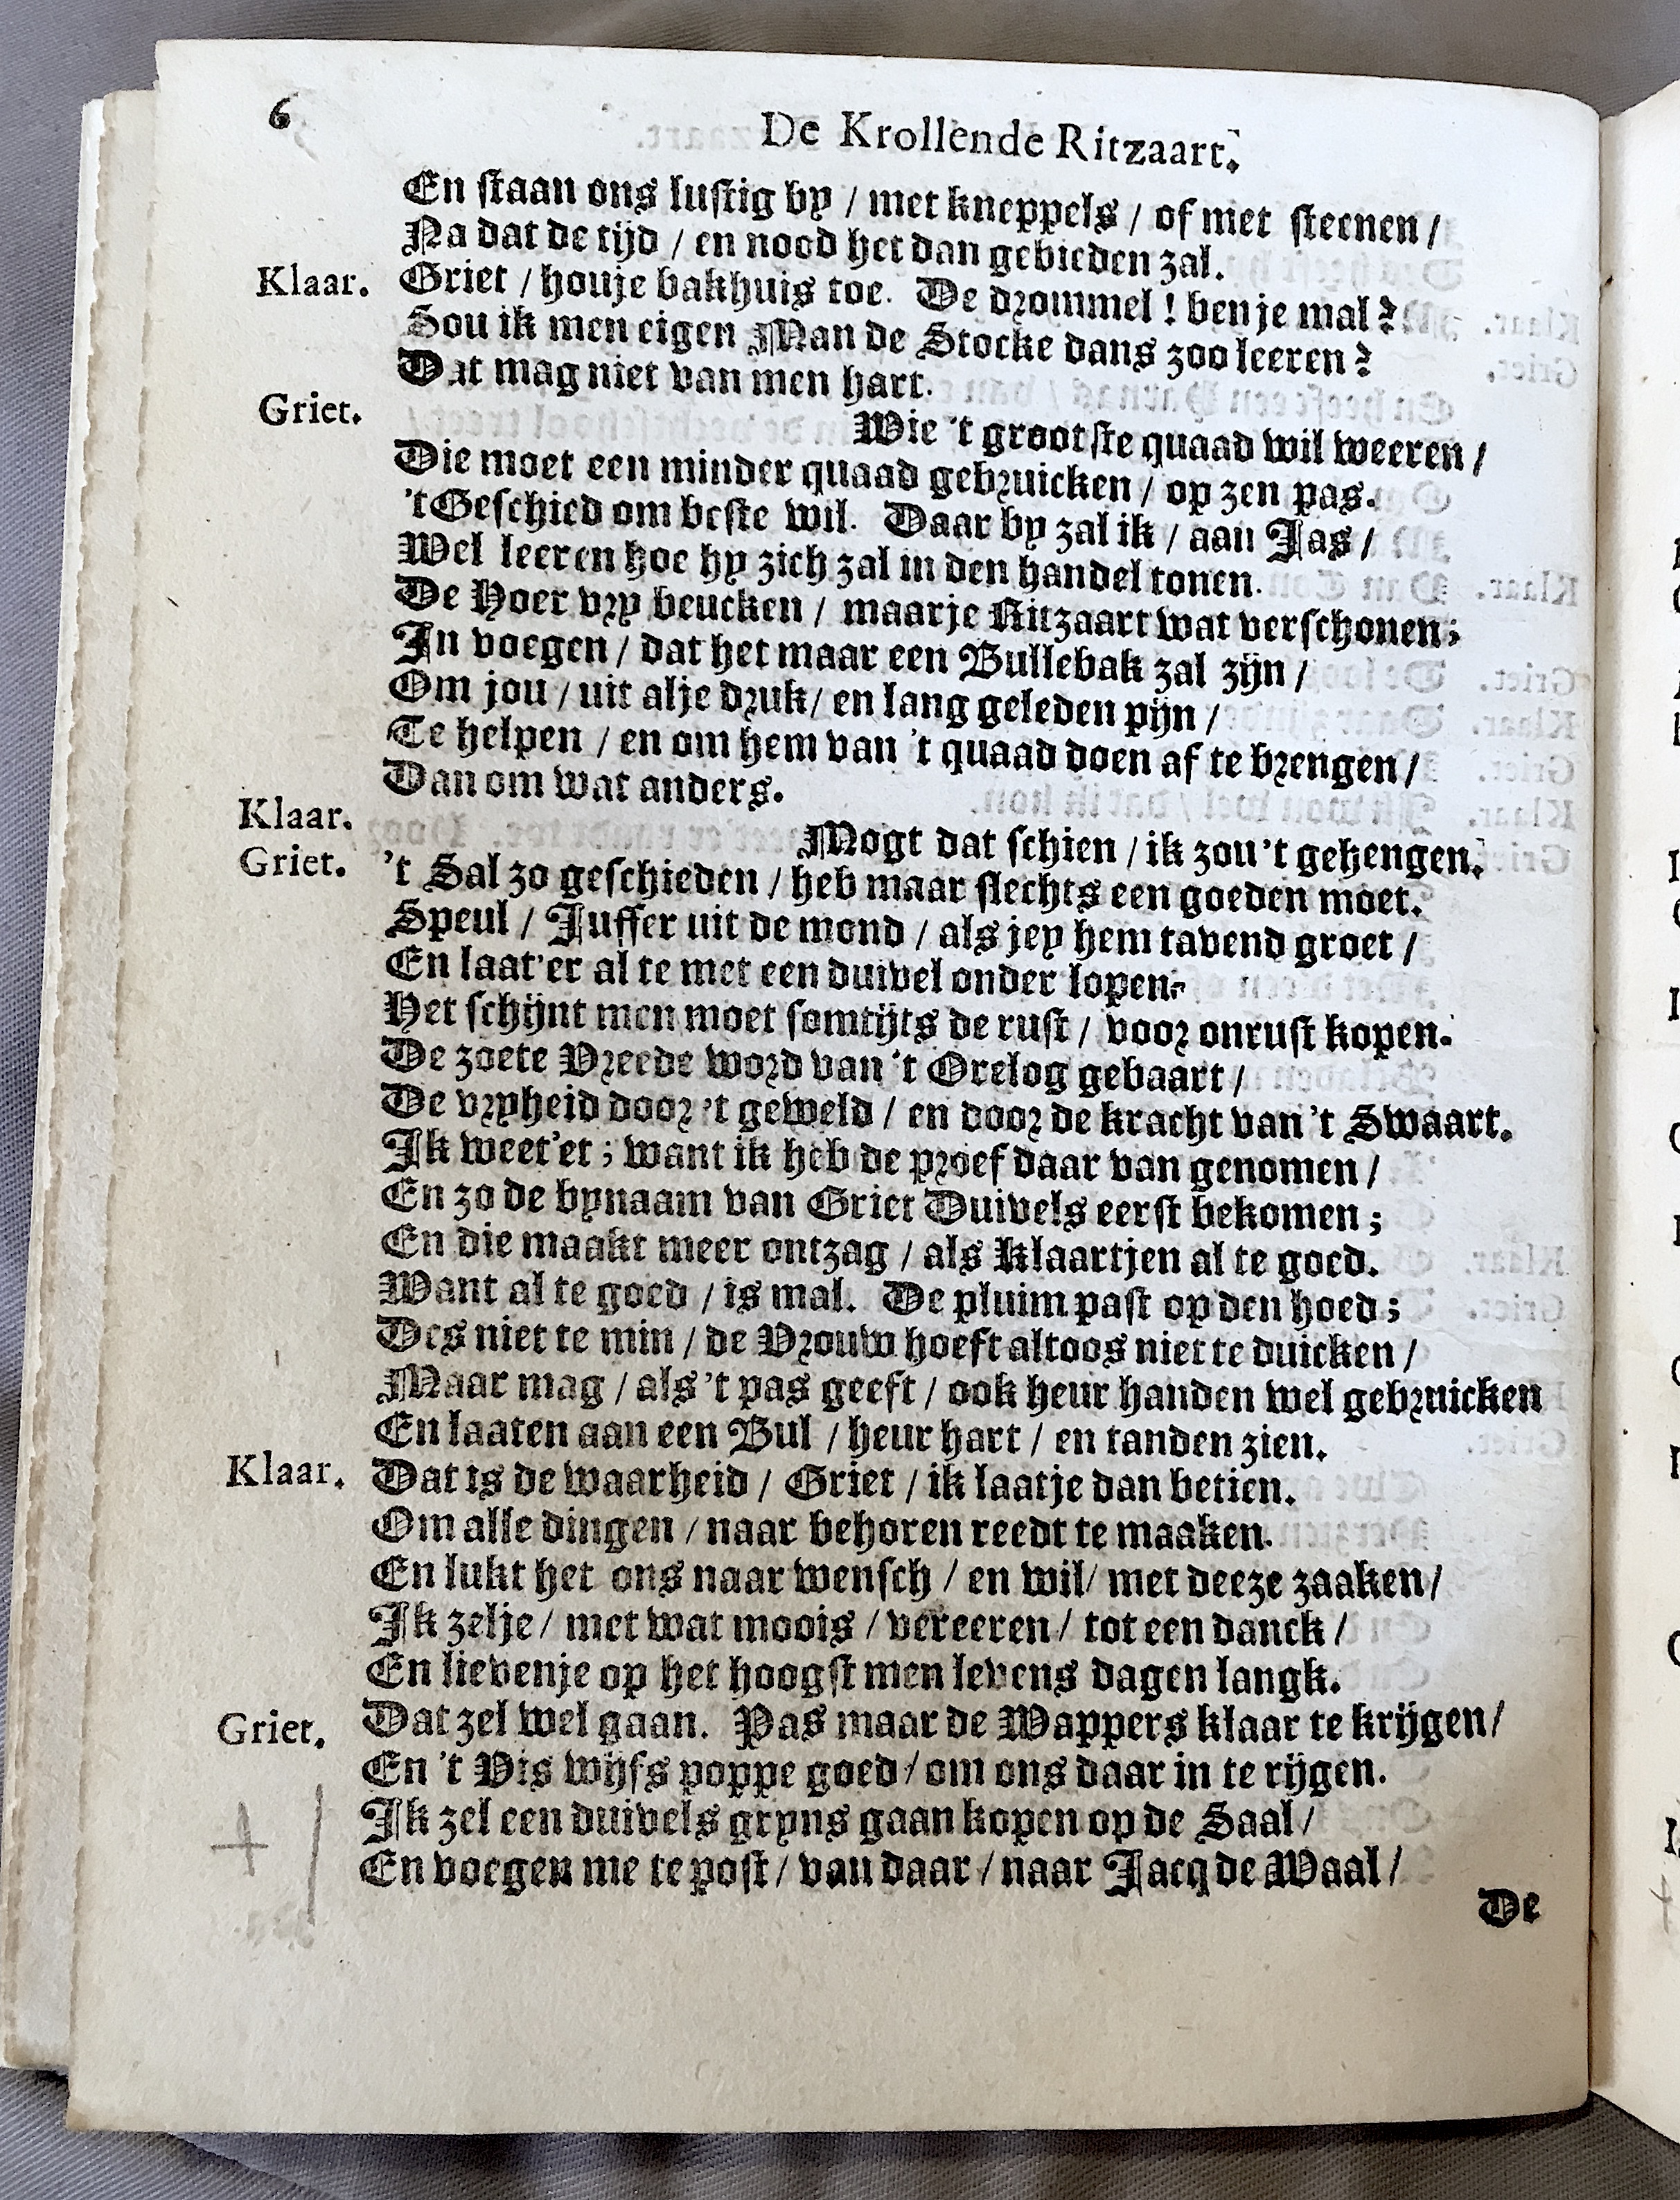 6
De Krollende Ritzaart.
En staan ons lustig by / met kneppels / of met steenen /
Na dat de tijd / en nood het dan gebieden zal.
Klaar. Griet / houje bakhuis toe. De drommel ! benje mal ?
Sou ik men eigen Man de Stocke dans zoo leeren ?
Dat mag niet van men hart.
Griet. Wie 't grootste quaad wil weeren /
Die moet een minder quaad gebruicken / op zen pas.
't Geschied om beste wil. Daar by zal ik / aan Jas /
Wel leeren hoe hy zich zal in den handel tonen.
De Hoer vry beucken / maarje Ritzaart wat verschonen;
In voegen / dat het maar een Bullebak zal zijn /
Om jou / uit alje druk / en lang geleden pijn /
Te helpen / en om hem van 't quaad doen af te brengen /
Dan om wat anders.
Klaar. Mogt dat schien / ik zou 't gehengen.
Griet. 't Sal zo geschieden / heb maar slechts een goeden moet.
Speul / Juffer uit de mond / als jey hem tavend groet /
En laat'er al te met een duivel onder lopen.
Het schijnt men moet somtijts de rust / voor onrust kopen.
De zoete Vreede word van 't Orelog gebaart /
De vryheid door 't geweld / en door de kracht van 't Swaart.
Ik weet'et ; want ik heb de proef daar van genomen /
En zo de bynaam van Griet Duivels eerst bekomen ;
En die maakt meer ontzag / als Klaartjen al te goed.
Want al te goed / is mal. De pluim past op den hoed ;
Des niet te min / de Vrouw hoeft altoos niet te duicken /
Maar mag / als 't pas geeft / ook heur handen wel gebruicken
En laaten aan een Bul / heur hart / en tanden zien.
Klaar. Dat is de waarheid / Griet / ik laatje dan betien.
Om alle dingen / naar behoren reedt te maaken.
En lukt het ons naar wensch / en wil / met deeze zaaken /
Ik zelje / met wat moois / vereeren / tot een danck /
En lievenje op het hoogst men levens dagen langk.
Griet. Dat zel wel gaan. Pas maar de Wappers klaar te krijgen /
En 't Vis wijfs poppe goed / om ons daar in te rijgen.
Ik zel een duivels gryns gaan kopen op de Saal /
En voegen me te post / van daar / naar Jacq de Waal /
De